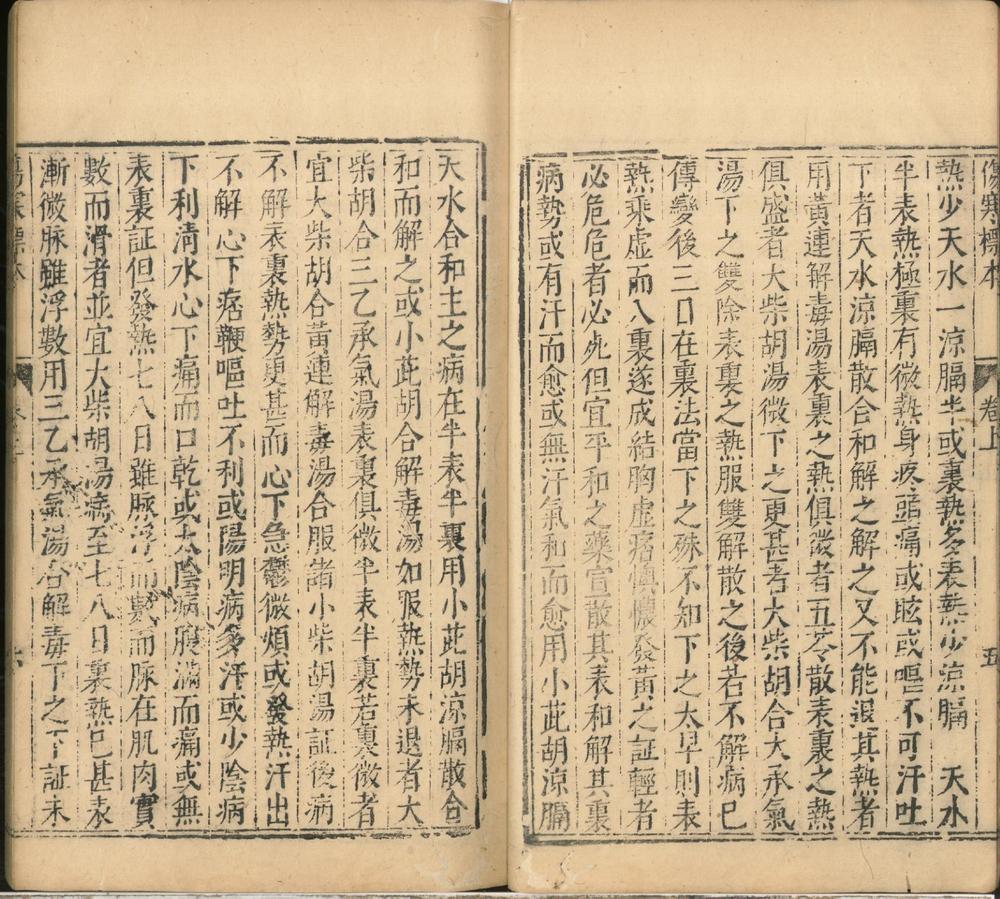 傷寒標本　卷上　五
熱少天水一涼膈半或裏熱多表熱少涼膈　天水
半表熱極裏有微熱身疼頭痛或眩或嘔不可汗吐
下者天水涼膈散合和解之解之又不能退其熱者
用黃連解毒湯表裏之熱俱微者五苓散表裏之熱
俱盛者大柴胡湯微下之更甚者大柴胡合大承氣
湯下之雙除表裏之熱服雙解散之後若不解病已
傳變後三日在裏法當下之殊不知下之太早則表
熱乘虛而入裏遂成結胸虛痞懊憹發黃之証輕者
必危危者必死但宜平和之藥宣散其表和解其裏
病勢或有汗而愈或無汗氣和而愈用小茈胡涼膈
天水合和主之病在半表半裏用小茈胡涼膈散合
和而解之或小茈胡合解毒湯如服熱勢未退者大
柴胡合三乙承氣湯表裏俱微半表半裏若裏微者
宜大柴胡合黃連解毒湯合服諸小柴胡湯証後病
不解表裏熱勢更甚而心下急鬱微煩或發熱汗出
不解心下痞鞕嘔吐不利或陽明病多汗或少陰病
下利清水心下痛而口乾或太陰病腹滿而痛或無
表裏証但發熱七八日雖脉浮而數而脉在肌肉實
數而滑者並宜大柴胡湯 至七八日裏熱已甚表
漸微脉雖浮數用三乙承氣湯合解毒下之下証未
傷寒標本